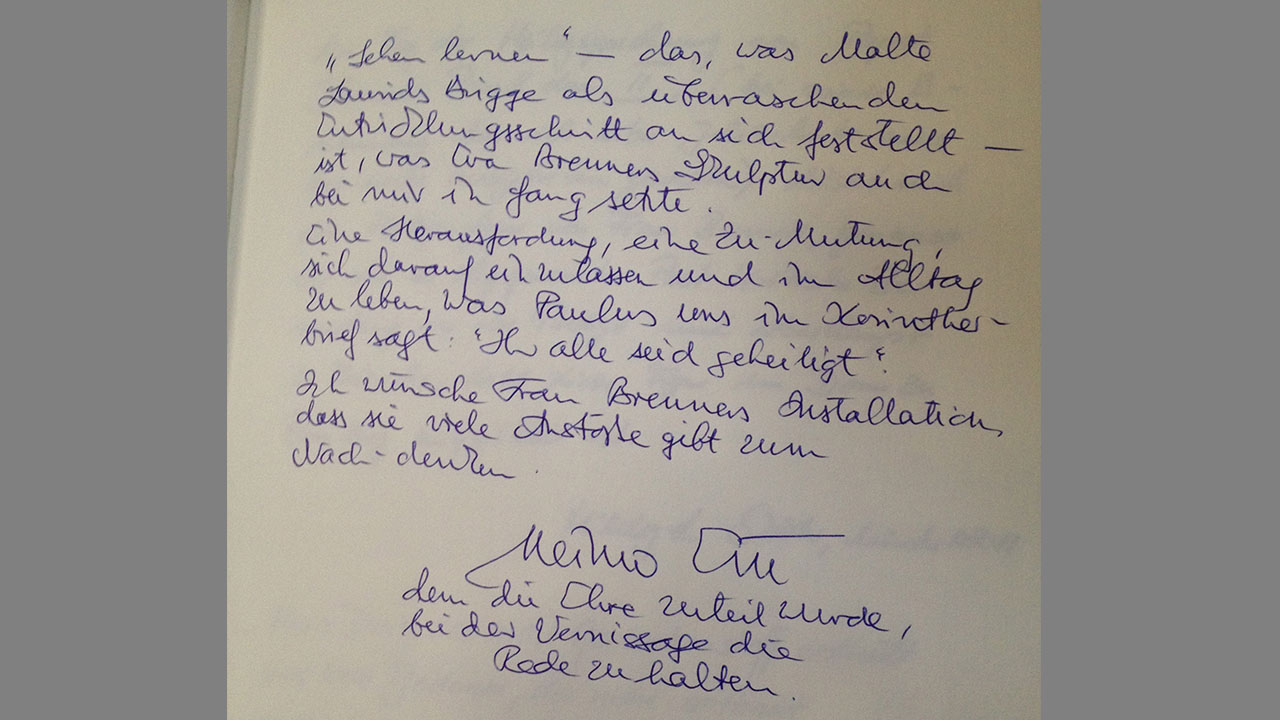 „Sehen lernen" — das, was Malte
Laurids Brigge als überraschenden
Entwicklungsschritt an sich feststellt —
ist, was Eva Brenners Skulptur auch
bei mir in Gang setzte.
Eine Herausforderung, eine Zu-Mutung,
sich darauf einzulassen und im Alltag
zu leben, was Paulus uns im Korinther-
brief sagt: "Ihr alle seid geheiligt".
Ich wünsche Frau Brenners Installation,
dass sie viele Anstöße gibt zum
Nach-denken.
dem die Ehre zuteil wurde,
bei der Vernissage die
Rede zu halten.